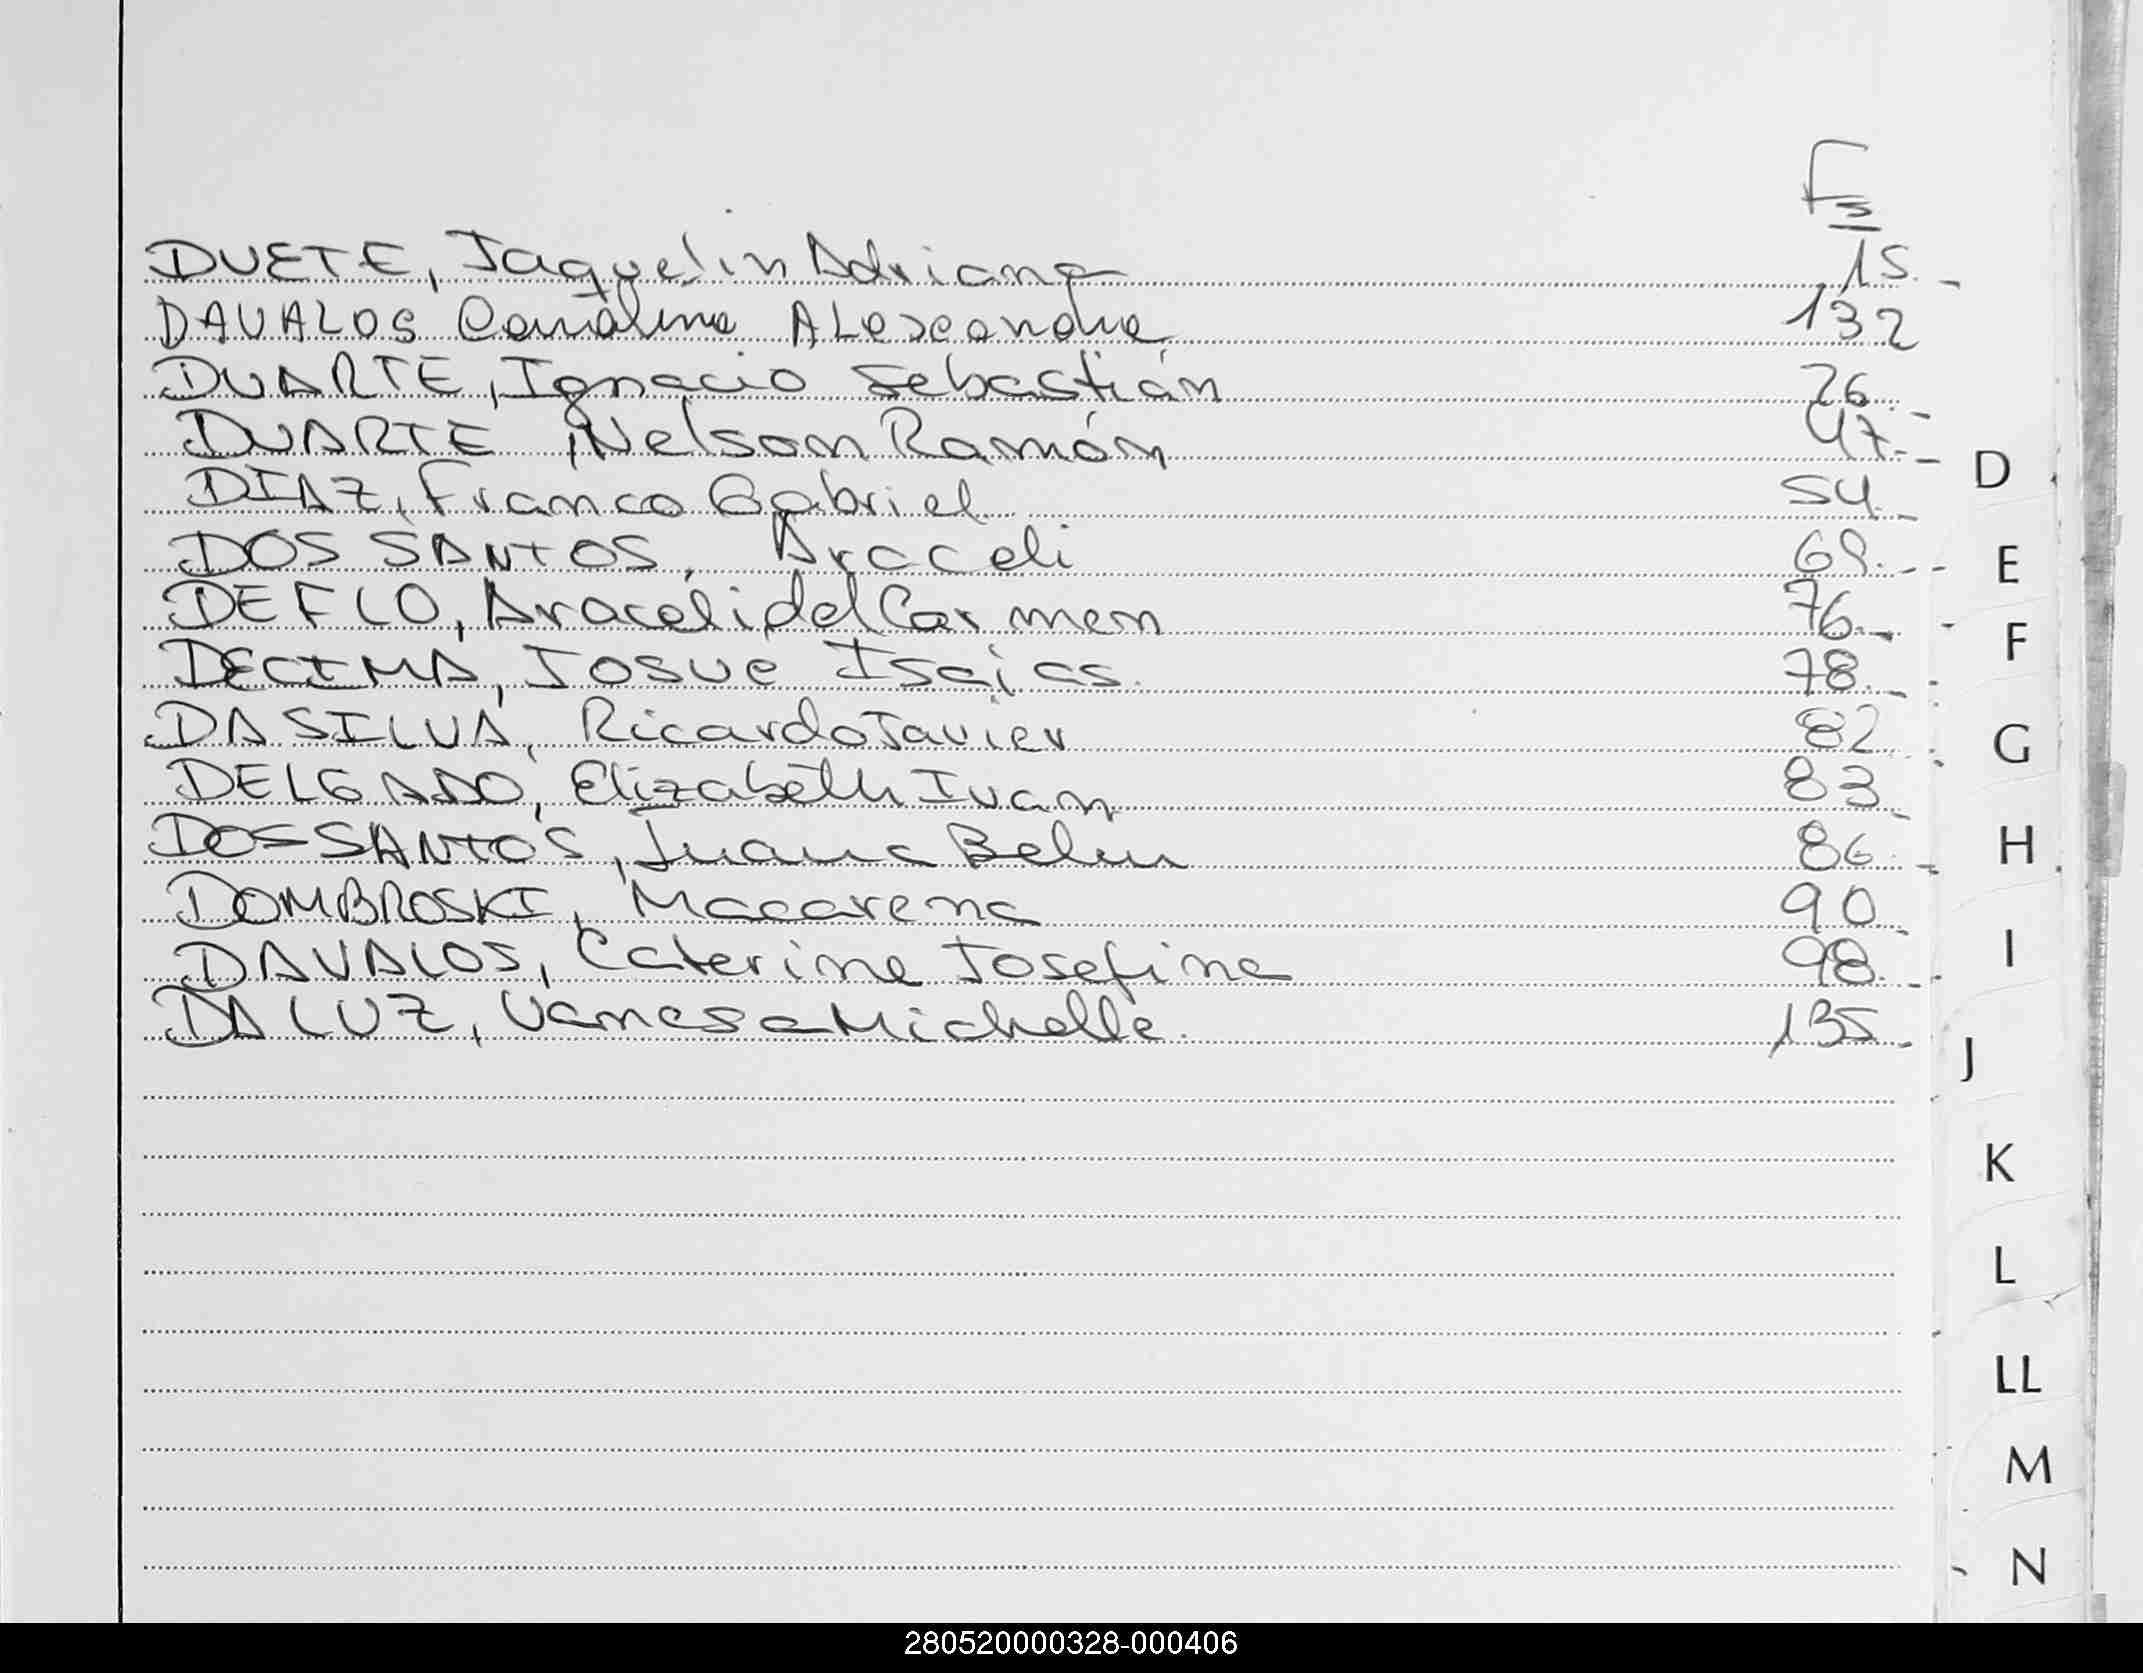 Fs
DUETE, Jaquelin Adriana 15.-
DAVALOS Carolina ALexandra 132
DUARTE, Ignacio Sebastián 26.-
DUARTE, Nelson Ramón 47.-
DIAZ, Franco Gabriel 54.-
DOS SANTOS, Araceli 69.-
DEFLO, Araceli del Carmen 76.-
DECIMA, Josue Isaias. 78.-
DA SILVA, Ricardo Javier 82.-
DELGADO, Elizabeth Ivan 83.-
DOS SANTOS, Juana Belen 86.-
DOMBROSKI, Macarena 90.-
DAVALOS, Caterine Josefina 98.-
DA LUZ, Vanesa Michelle. 135.-
D
E
F
G
H
I
J
K
L
LL
M
N
280520000328-000406